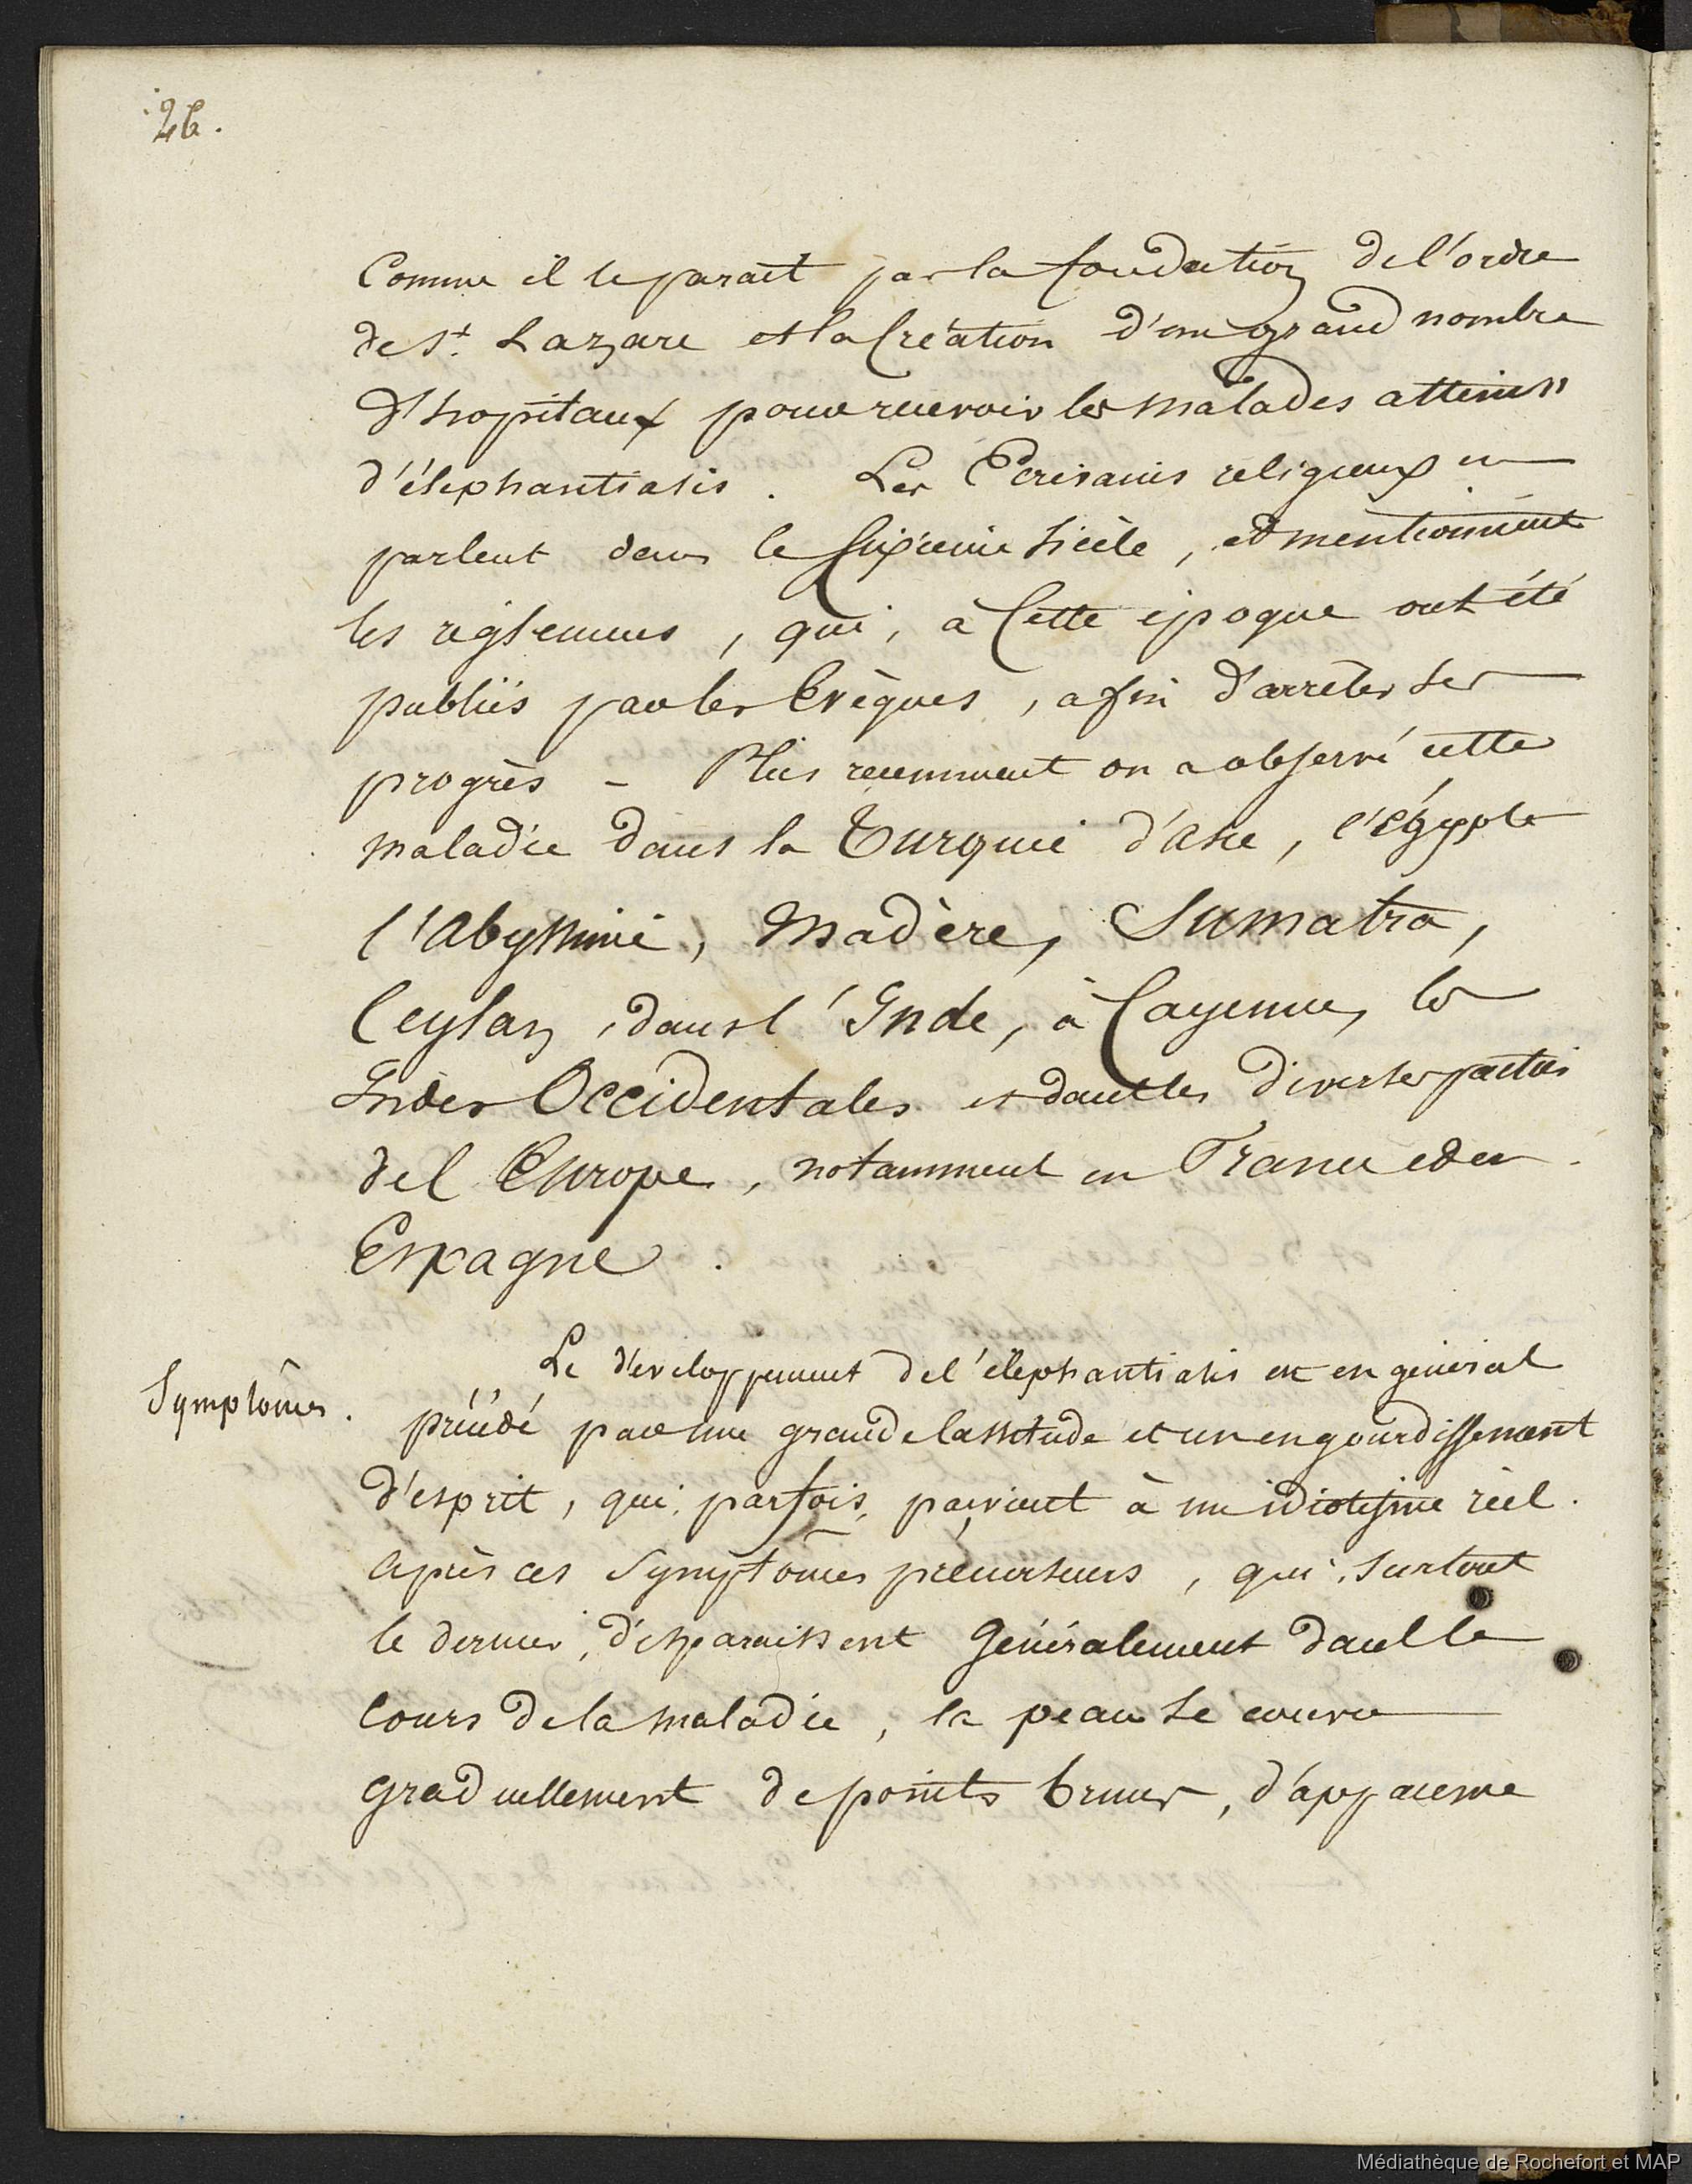 26.
Comme il le parait par la fondation de l'ordre
de St. Lazare et la Création d'un grand nombre
d'hopitaux pour recevoir les malades atteints
d'élephantiasis. Les Ecrivains religieux en
parlent dans le sixieme siècle, et mentionnent
les réglemens, qui, à Cette époque ont été
publiés par les Evèques, afin d'arrêter ses
progrès - Plus recemment on a observé cette
maladie dans la Turquie d'asie, l'égypte
l'Abyssinie, Madère, Sumatra,
Ceylan, dans l'Inde, à Cayenne, les
Indes Occidentales et dans les diverses parties
de l'Europe, notamment en France et en
Espagne.
Symptômes.
Le développement de l'élephantiasis est en général
précédé par une grande lassitude et un engourdissement
d'esprit, qui parfois, parvient à un idiotisme réel.
après ces symptômes précurseurs, qui, surtout
le dernier, disparaissent généralement dans le
Cours de la maladie, la peau se couvre
graduellement de points bruns, d'apparence
Médiathèque de Rochefort et MAP